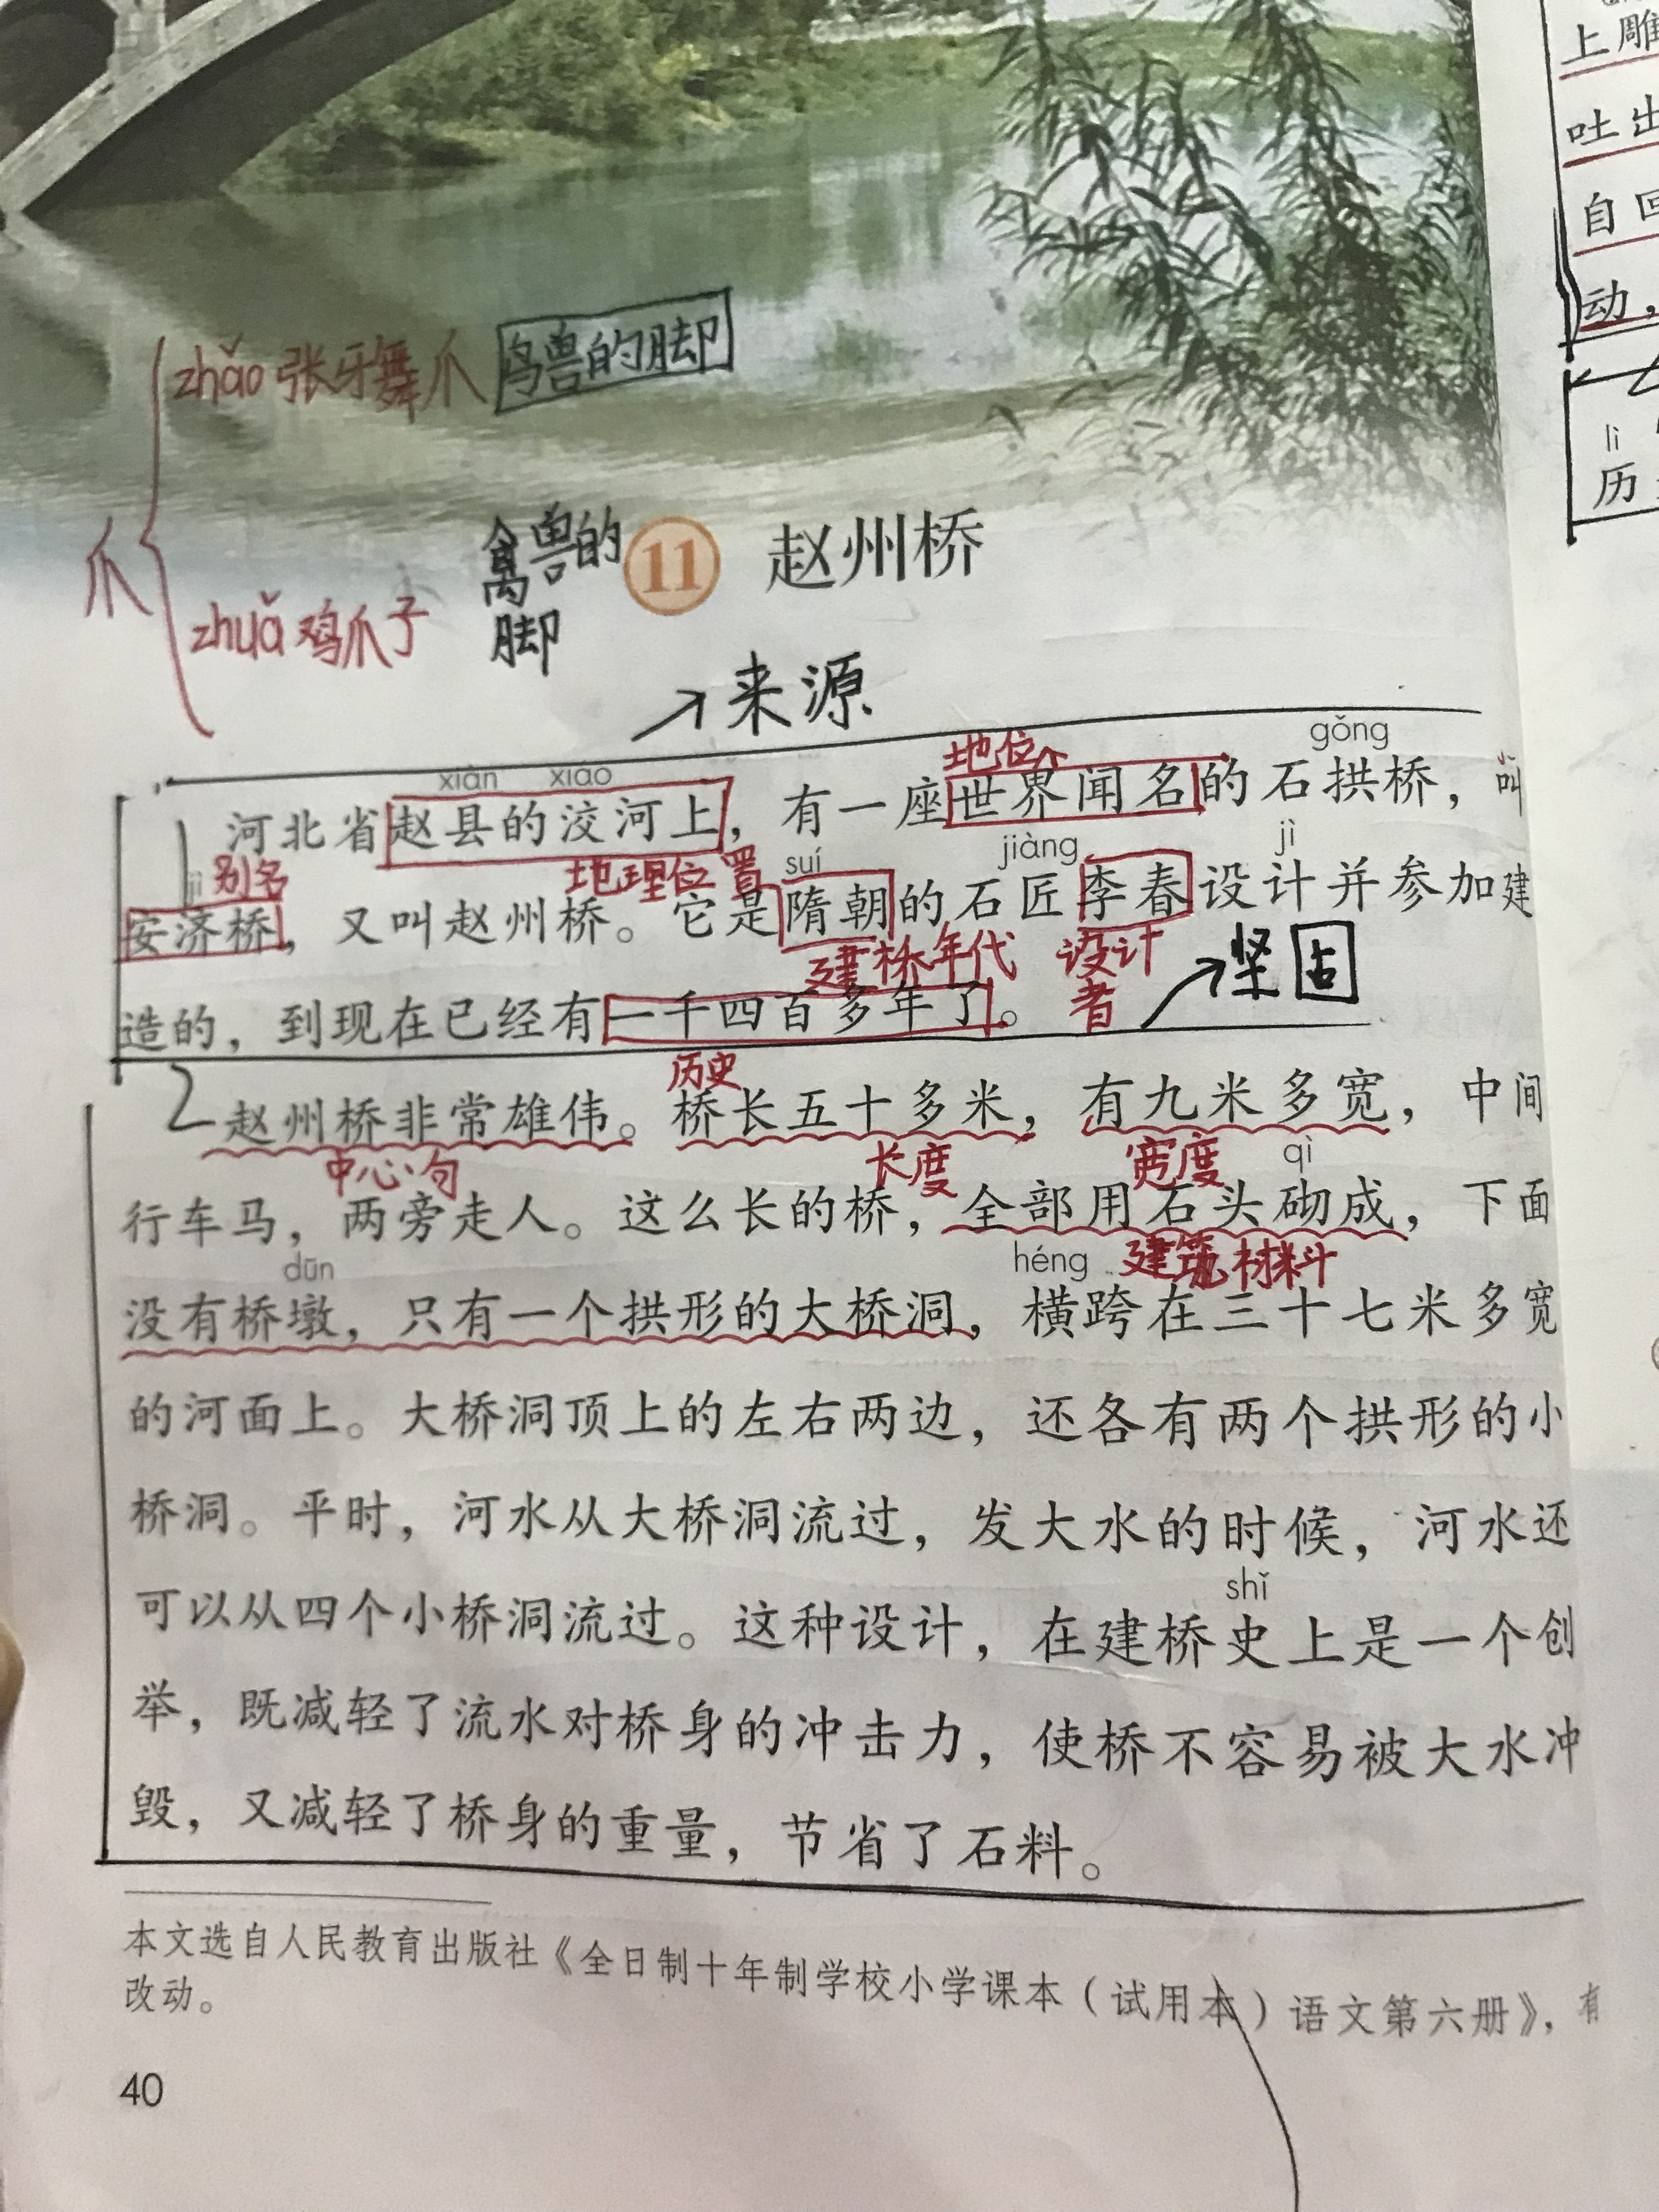 zhǎo 张牙舞爪 鸟兽的脚
爪
zhuǎ 鸡爪子
禽兽的
脚
11 赵州桥
来源
地位
xiàn xiáo gǒng
河北省赵县的洨河上，有一座世界闻名的石拱桥，叫
别名 地理位置
jì suí jiàng jì
安济桥，又叫赵州桥。它是隋朝的石匠李春设计并参加建
建桥年代 设计者 坚固
造的，到现在已经有一千四百多年了。
历史
2 赵州桥非常雄伟。桥长五十多米，有九米多宽，中间
中心句 长度 宽度
qì
行车马，两旁走人。这么长的桥，全部用石头砌成，下面
建筑材料
dūn héng
没有桥墩，只有一个拱形的大桥洞，横跨在三十七米多宽
的河面上。大桥洞顶上的左右两边，还各有两个拱形的小
桥洞。平时，河水从大桥洞流过，发大水的时候，河水还
shǐ
可以从四个小桥洞流过。这种设计，在建桥史上是一个创
举，既减轻了流水对桥身的冲击力，使桥不容易被大水冲
毁，又减轻了桥身的重量，节省了石料。
本文选自人民教育出版社《全日制十年制学校小学课本（试用本）语文第六册》，有
改动。
40
上雕
吐出
自回
动，
lì
历